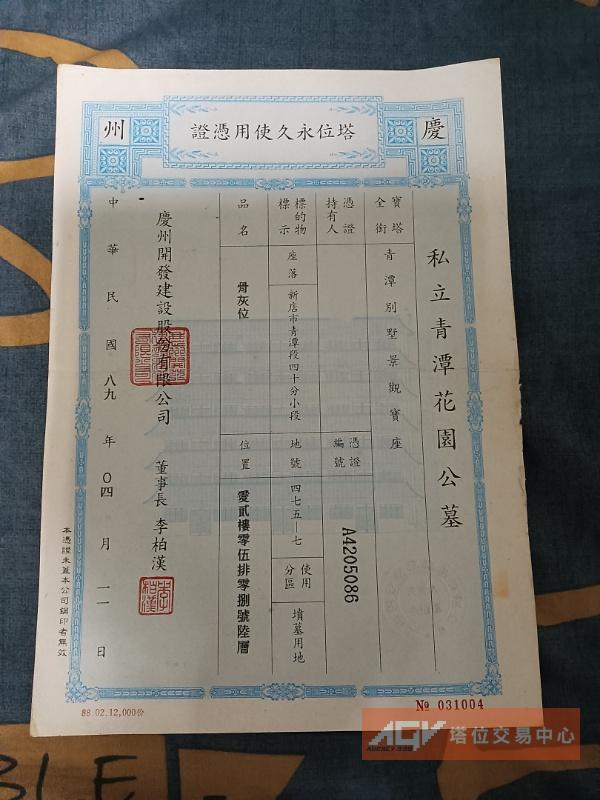 慶州
塔位永久使用憑證
私立青潭花園公墓
寶塔全銜
青潭別墅景觀寶座
憑證持有人
憑證編號
A4205086
標的物標示
座落
新店市青潭段四十分小段
地號
四七五—七
使用分區
墳墓用地
品名
骨灰位
位置
零貳樓零伍排零捌號陸層
慶州開發建設股份有限公司
董事長 李柏漢
中華民國八九年〇四月一一日
本憑證未蓋本公司鋼印者無效
88.02.12,000份
№ 031004
AGV
AGENCY.330
塔位交易中心
BLE